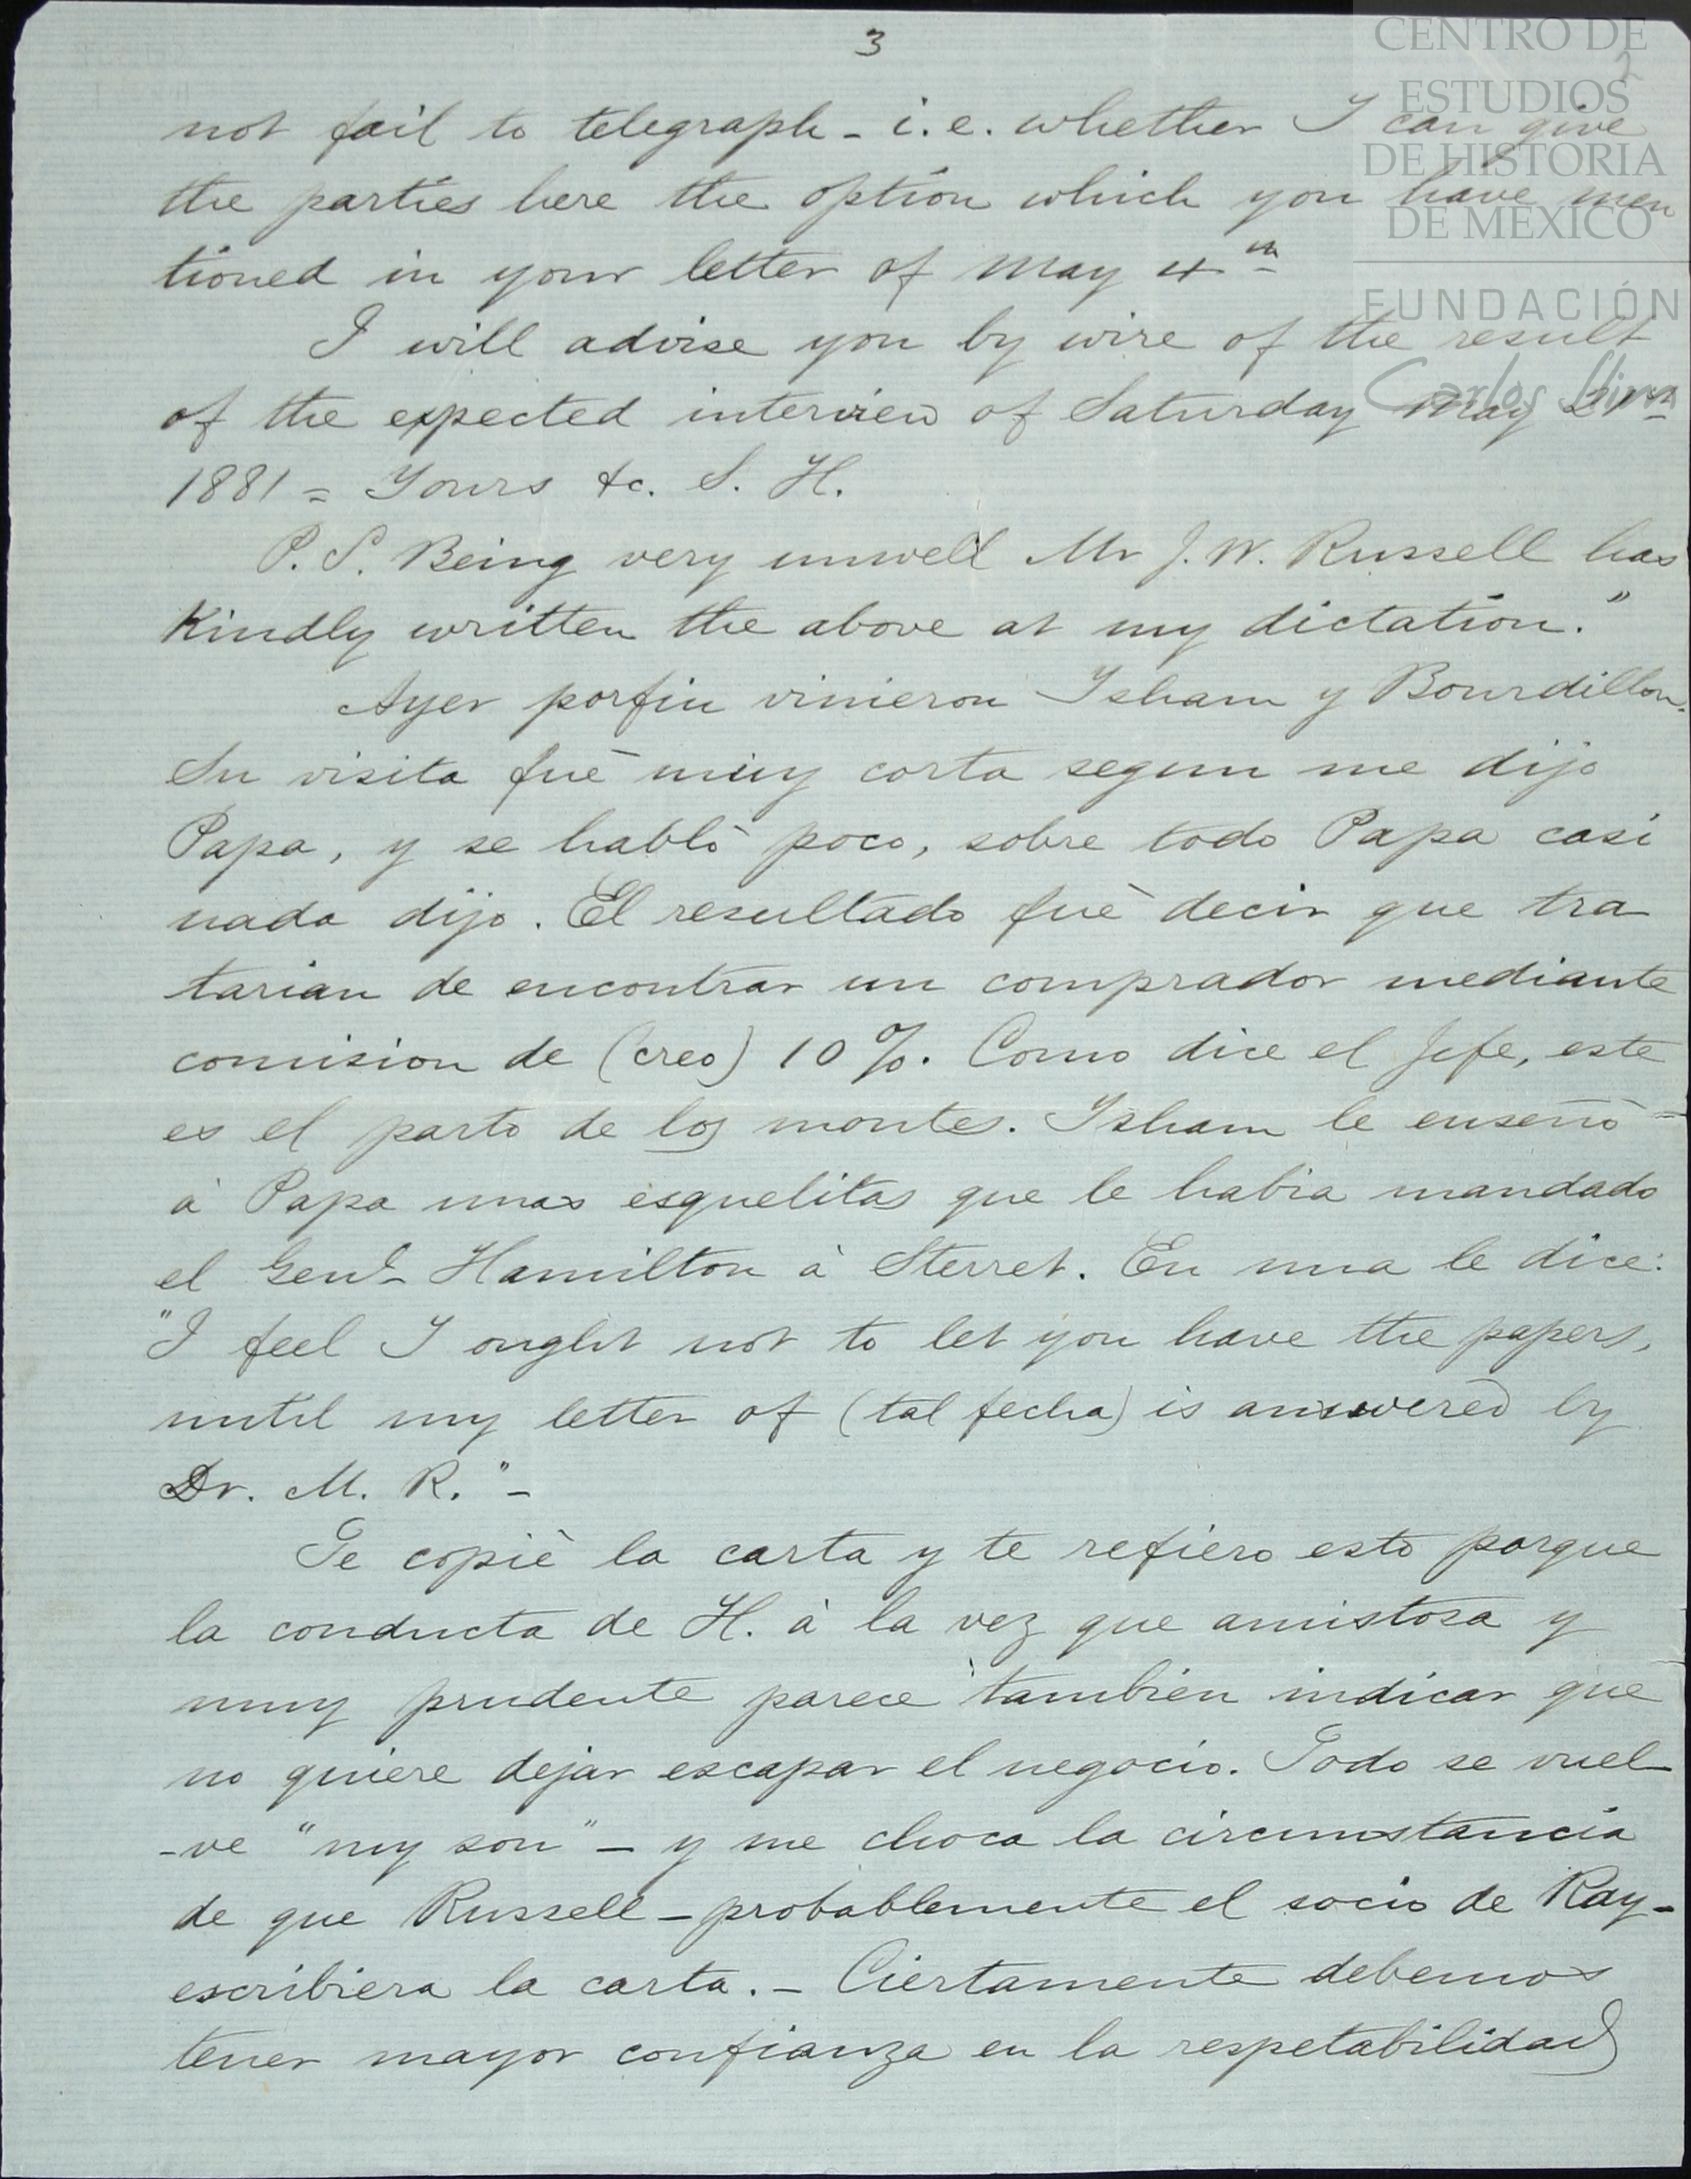 3
CENTRO DE
ESTUDIOS
DE HISTORIA
DE MÉXICO
FUNDACIÓN
Carlos Slim
2
not fail to telegraph - i.e. whether I can give
the parties here the option which you have men
tioned in your letter of May 4th
I will advise you by wire of the result
of the expected interview of Saturday May 21st
1881 = Yours &c. S. H.
P.S. Being very unwell Mr J. W. Russell has
Kindly written the above at my dictation."
Ayer porfin vinieron Isham y Bourdillon.
Su visita fuè muy corta segun me dijo
Papa, y se hablò poco, sobre todo Papa casi
nada dijo. El resultado fuè decir que tra
tarian de encontrar un comprador mediante
comision de (creo) 10%. Como dice el Jefe, este
es el parto de los montes. Isham le enseñò -
à Papa unas esquelitas que le habia mandado
el Genl Hamilton à Sterret. En una le dice:
"I feel I ought not to let you have the papers,
until my letter of (tal fecha) is answered by
Dr. M. R." -
Te copiè la carta y te refiero esto porque
la conducta de H. à la vez que amistosa y
muy prudente parece tambien indicar que
no quiere dejar escapar el negocio. Todo se vuel-
-ve "my son" - y me choca la circumstancia
de que Russell - probablemente el socio de Ray -
escribiera la carta. - Ciertamente debemos
tener mayor confianza en la respetabilidad